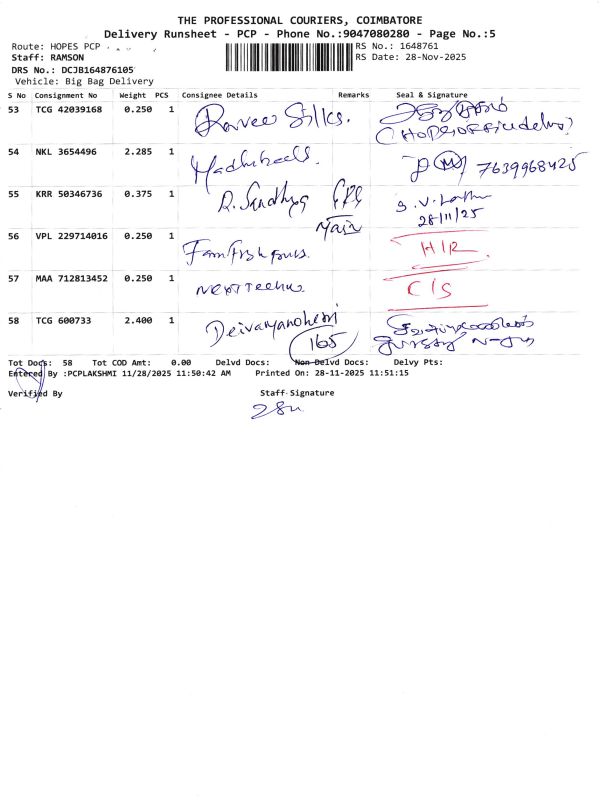 THE PROFESSIONAL COURIERS, COIMBATORE
Delivery Runsheet - PCP - Phone No.:9047080280 - Page No.:5
Route: HOPES PCP
RS No.: 1648761
Staff: RAMSON
RS Date: 28-Nov-2025
DRS No.: DCJB164876105
Vehicle: Big Bag Delivery
S No Consignment No Weight PCS Consignee Details Remarks Seal & Signature
53 TCG 42039168 0.250 1 Silks.
54 NKL 3654496 2.285 1 7639968425
55 KRR 50346736 0.375 1 R. Sandhya
28/11/25
56 VPL 229714016 0.250 1 H/R
57 MAA 712813452 0.250 1 C/S
58 TCG 600733 2.400 1
165
Tot Docs: 58 Tot COD Amt: 0.00 Delvd Docs: Non Delvd Docs: Delvy Pts:
Entered By :PCPLAKSHMI 11/28/2025 11:50:42 AM Printed On: 28-11-2025 11:51:15
Verified By Staff Signature